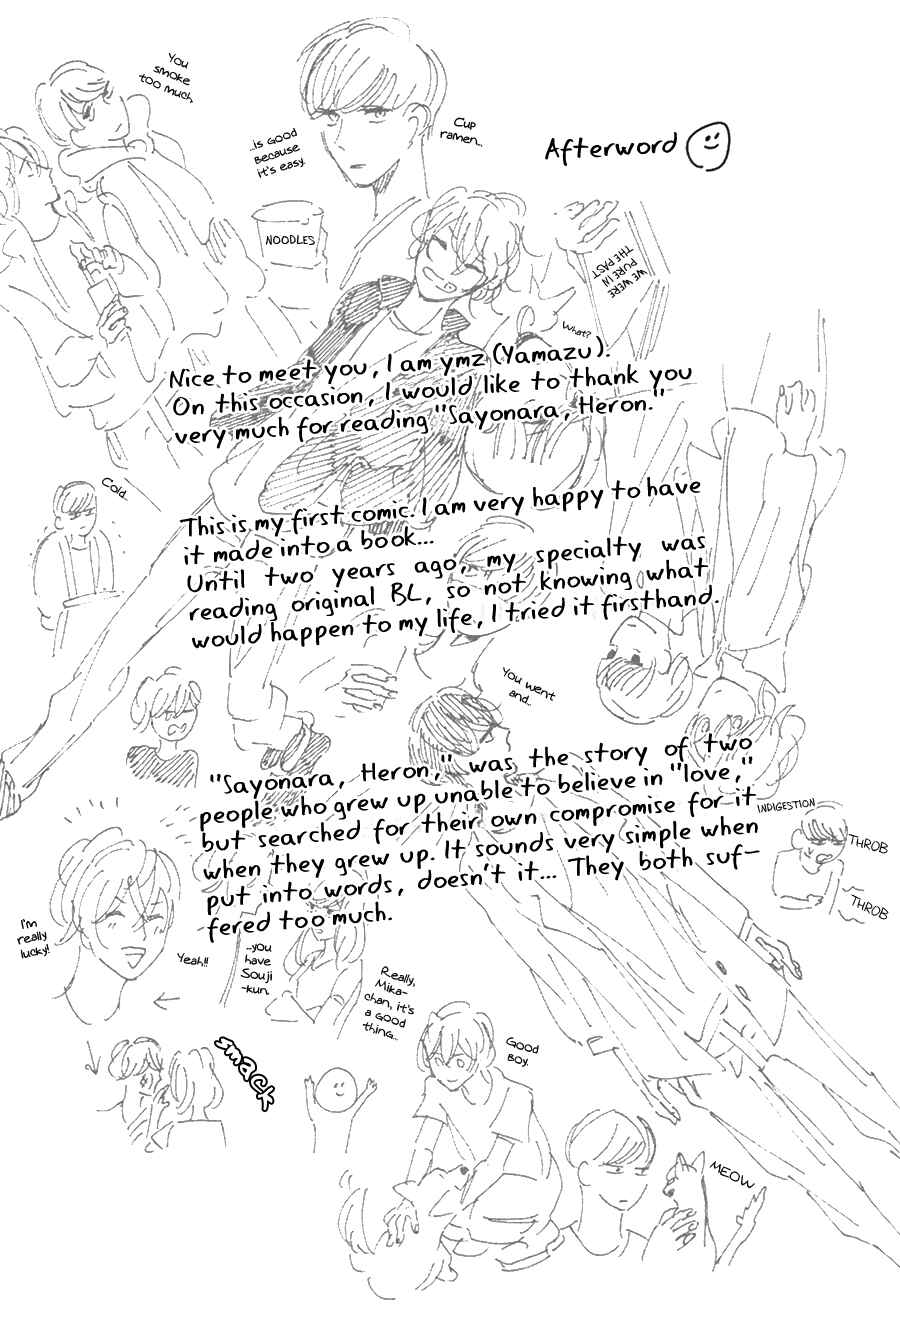 You
smoke
too much.
Cup
ramen...
...is good
because
it's easy.
Afterword
NOODLES
WE WERE
PURE IN
THE PAST
What?
Nice to meet you, I am ymz (Yamazu).
On this occasion, I would like to thank you
very much for reading "Sayonara, Heron."
Cold...
This is my first comic. I am very happy to have
it made into a book...
Until two years ago, my specialty was
reading original BL, so not knowing what
would happen to my life, I tried it firsthand.
You went
and...
"Sayonara, Heron," was the story of two
people who grew up unable to believe in "love,"
but searched for their own compromise for it
when they grew up. It sounds very simple when
put into words, doesn't it... They both suf-
fered too much.
INDIGESTION
THROB
THROB
I'm
really
lucky!
Yeah!!
...you
have
Souji
-kun.
Really,
Mika-
chan, it's
a good
thing...
smack
Good
boy.
MEOW